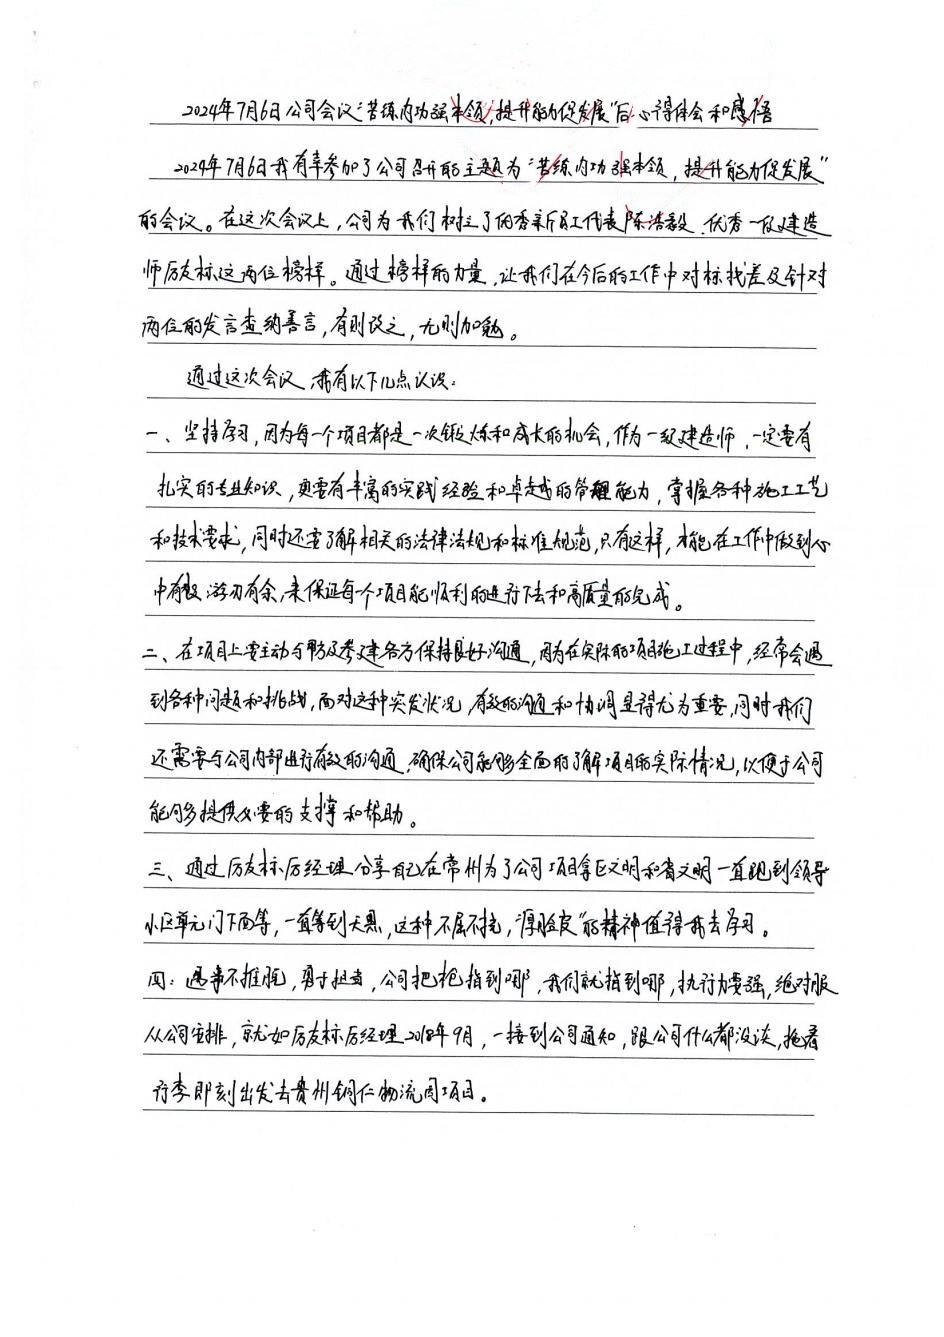 2024年7月6日公司会议“苦练内功强本领,提升能力促发展”后心得体会和感悟
2024年7月6日我有幸参加了公司召开的主题为“苦练内功强本领,提升能力促发展”
的会议。在这次会议上,公司为我们树立了优秀新员工代表陈浩毅、优秀一级建造
师厉友标这两位榜样。通过榜样的力量,让我们在今后的工作中对标找差及针对
两位的发言查纳善言,有则改之,无则加勉。
通过这次会议,我有以下几点认识:
一、坚持学习,因为每一个项目都是一次锻炼和成长的机会,作为一级建造师,一定要有
扎实的专业知识,更要有丰富的实践经验和卓越的管理能力,掌握各种施工工艺
和技术要求,同时还要了解相关的法律法规和标准规范,只有这样,才能在工作中做到心
中有数,游刃有余,来保证每个项目能顺利的进行下去和高质量的完成。
二、在项目上要主动与甲方及参建各方保持良好沟通,因为在实际的项目施工过程中,经常会遇
到各种问题和挑战,面对这种突发状况,有效的沟通和协调显得尤为重要,同时我们
还需要与公司内部进行有效的沟通,确保公司能够全面的了解项目的实际情况,以便于公司
能够提供必要的支撑和帮助。
三、通过厉友标厉经理分享自己在常州为了公司项目拿区文明和省文明一直跑到领导
小区单元门下面等,一直等到天黑,这种不屈不挠,“厚脸皮”的精神值得我去学习。
四:遇事不推脱,勇于担当,公司把枪指到哪,我们就指到哪,执行力要强,绝对服
从公司安排,就如厉友标厉经理2018年9月,一接到公司通知,跟公司什么都没谈,拖着
行李即刻出发去贵州铜仁物流园项目。